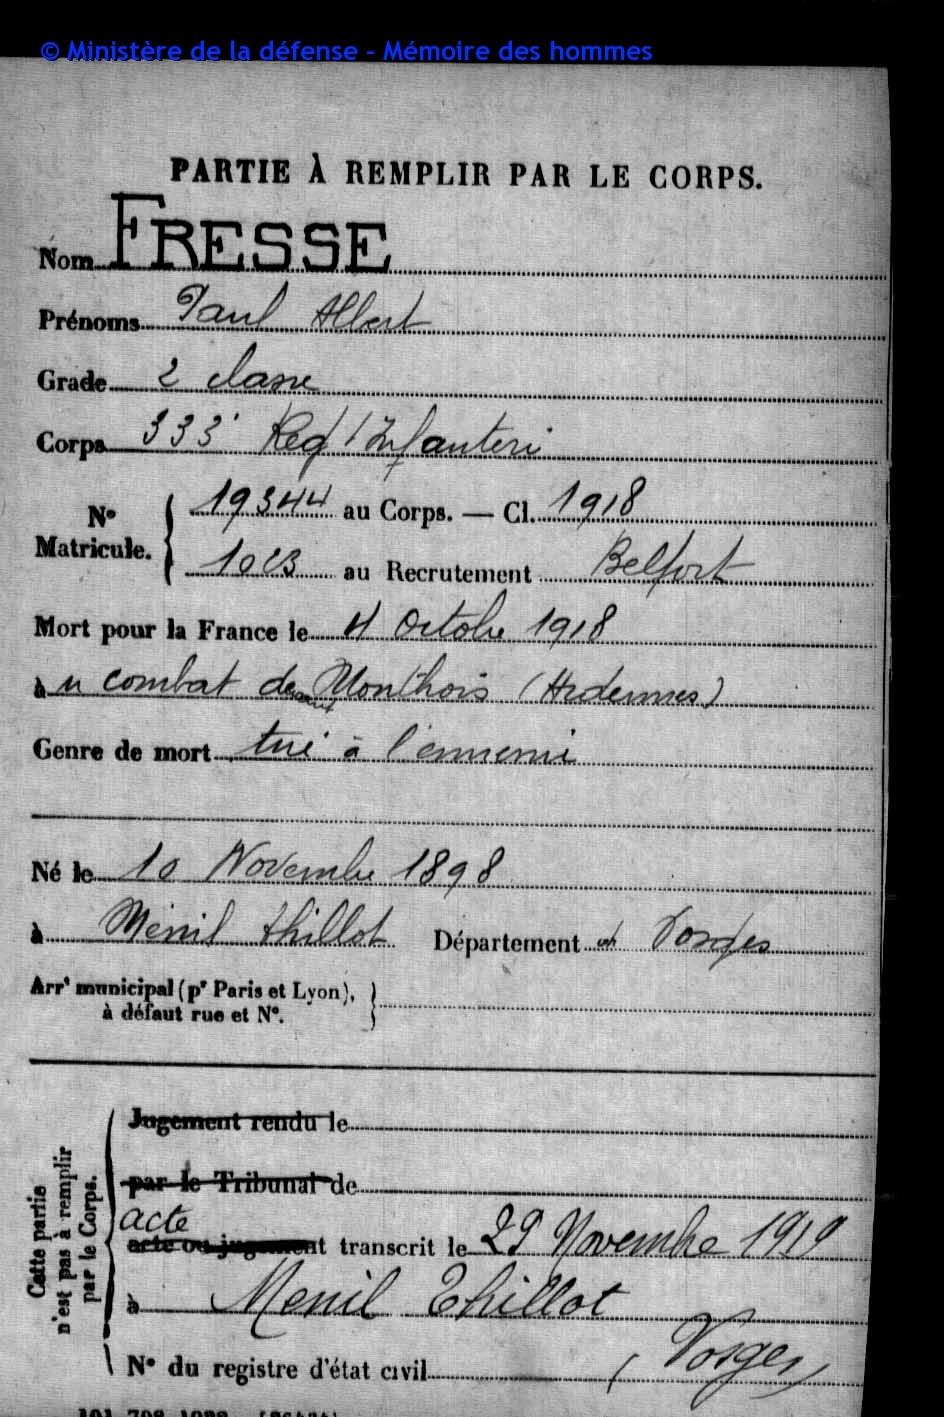 © Ministère de la défense - Mémoire des hommes
PARTIE À REMPLIR PAR LE CORPS.
Nom FRESSE
Prénoms Paul Albert
Grade 2 classe
Corps 333e Reg d'Infanteri
N° Matricule. 19344 au Corps. — Cl. 1918
au Recrutement Belfort
Mort pour la France le 4 Octobre 1918
à u combat de Monthois (Ardennes)
Genre de mort tué à l'ennemi
Né le 10 Novembre 1898
à Ménil thillot Département Vosges
Arrt municipal (pr Paris et Lyon),
à défaut rue et N°.
Cette partie
n'est pas à remplir
par le Corps.
Jugement rendu le
par le Tribunal de
acte
acte ou jugement transcrit le 29 Novembre 1919
à Menil Thillot
(Vosges)
N° du registre d'état civil